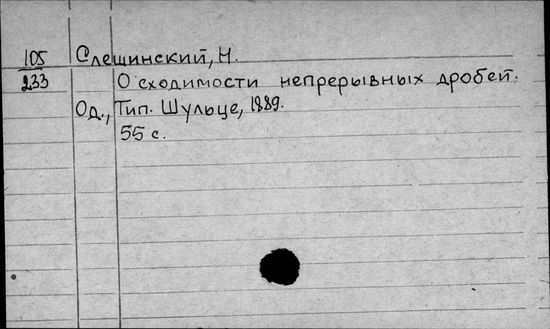 105 Слешинский, Н.
233 О сходимости непрерывных дробей.
Од., Тип. Шульце, 1889.
55 с.